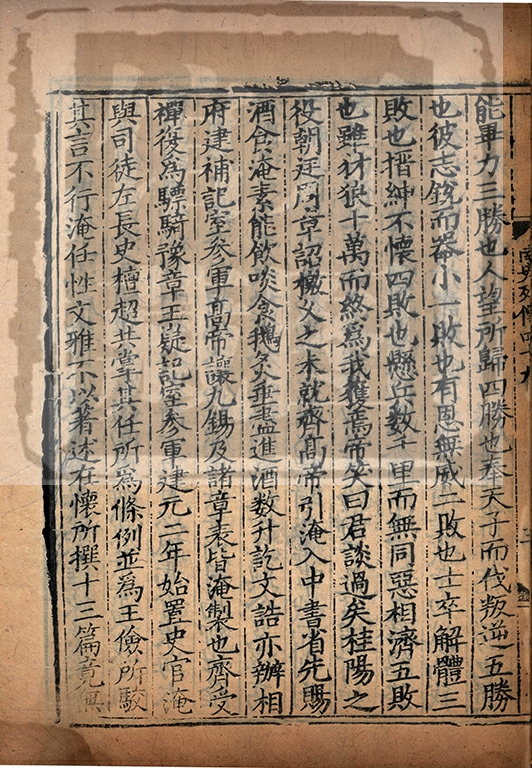 能畢力三勝也人望所歸四勝也奉天子而伐叛逆五勝
也彼志銳而噐小一敗也有恩無威二敗也士卒解體三
敗也搢紳不懷四敗也懸兵數千里而無同惡相濟五敗
也雖豺狼十萬而終爲我獲焉帝笑曰君談過矣桂陽之
役朝廷周章詔檄久之未就齊髙帝引淹入中書省先賜
酒食淹素能飲啖食鵝炙垂盡進酒数升訖文誥亦辦相
府建補記室參軍髙帝讓九錫及諸章表皆淹製也齊受
禪後爲驃騎豫章王嶷記室參軍建元二年始置史官淹
與司徒左長史檀超共掌其任所爲條例並爲王儉所駁
其言不行淹任性文雅不以著述在懷所撰十三篇竟無